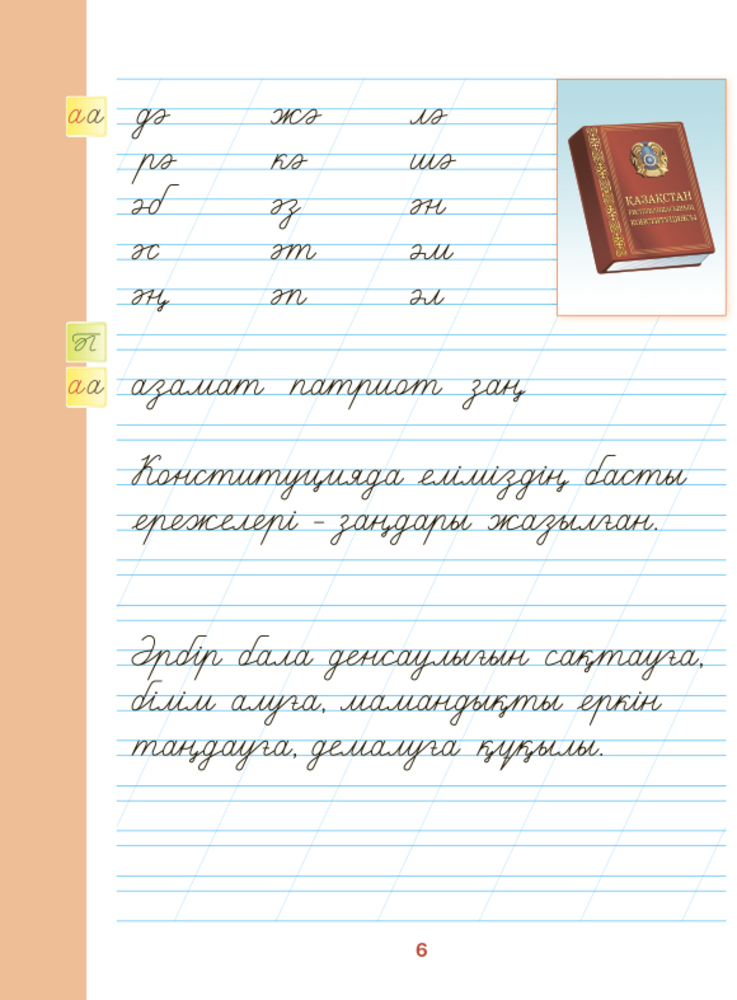 аа дә жә лә
рә кә шә
әб әз ән
әс әт әм
әң әп әл
ҚАЗАҚСТАН
РЕСПУБЛИКАСЫНЫҢ
КОНСТИТУЦИЯСЫ
П
аа азамат патриот заң
Конституцияда еліміздің басты
ережелері - заңдары жазылған.
Әрбір бала денсаулығын сақтауға,
білім алуға, мамандықты еркін
таңдауға, демалуға құқылы.
6